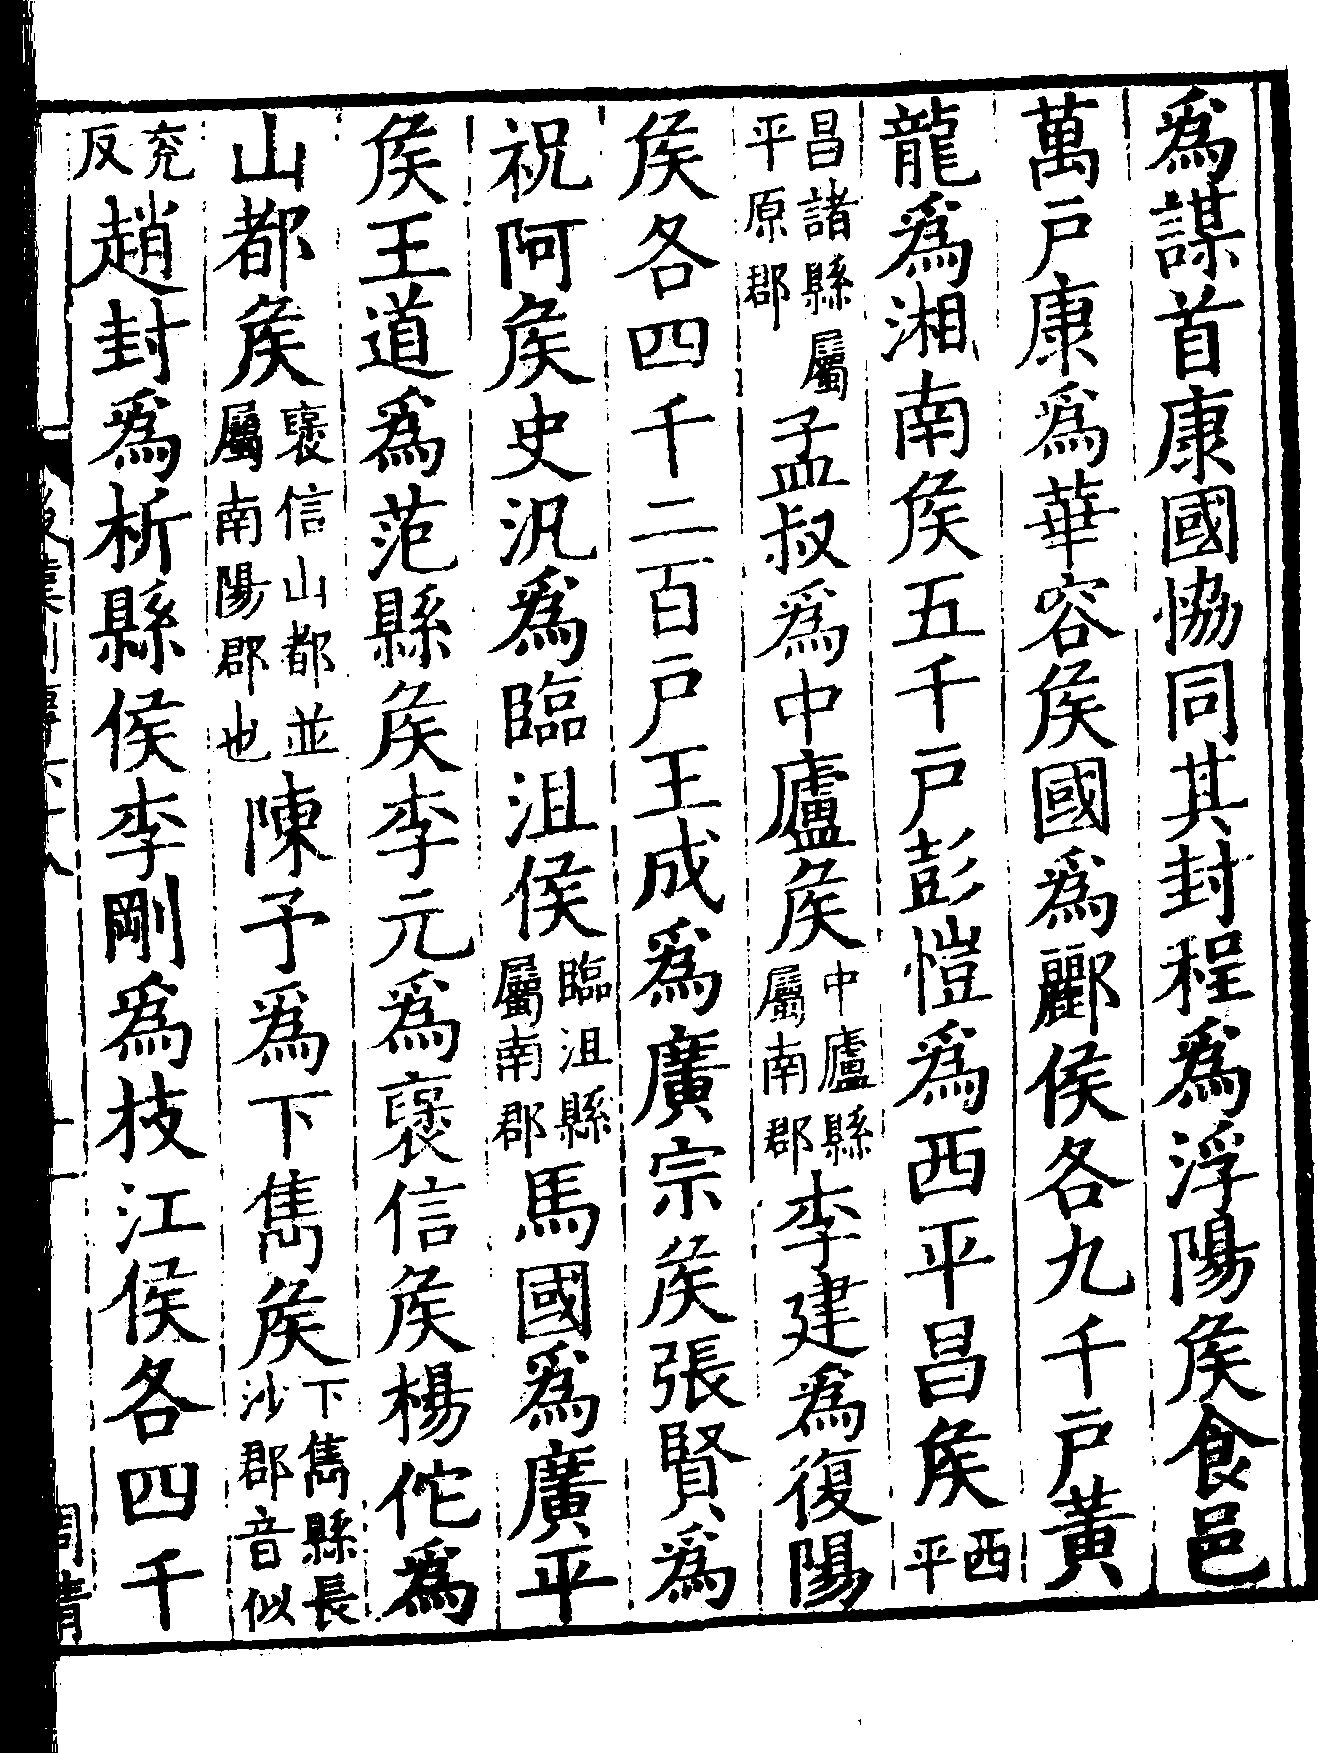 爲謀首康國協同其封程爲浮陽矦食邑
萬戸康爲華容矦國爲酈侯各九千戸黃
龍爲湘南矦五千戸彭愷爲西平昌矦西平
昌諸縣屬平原郡孟叔爲中廬矦中廬縣屬南郡李建爲復陽
矦各四千二百戸王成爲廣宗矦張賢爲
祝阿矦史汎爲臨沮侯臨沮縣屬南郡馬國爲廣平
矦王道爲范縣矦李元爲褒信矦楊佗爲
山都矦褒信山都並屬南陽郡也陳予爲下雋矦下雋縣長沙郡音似
兖反趙封爲析縣侯李剛爲枝江侯各四千